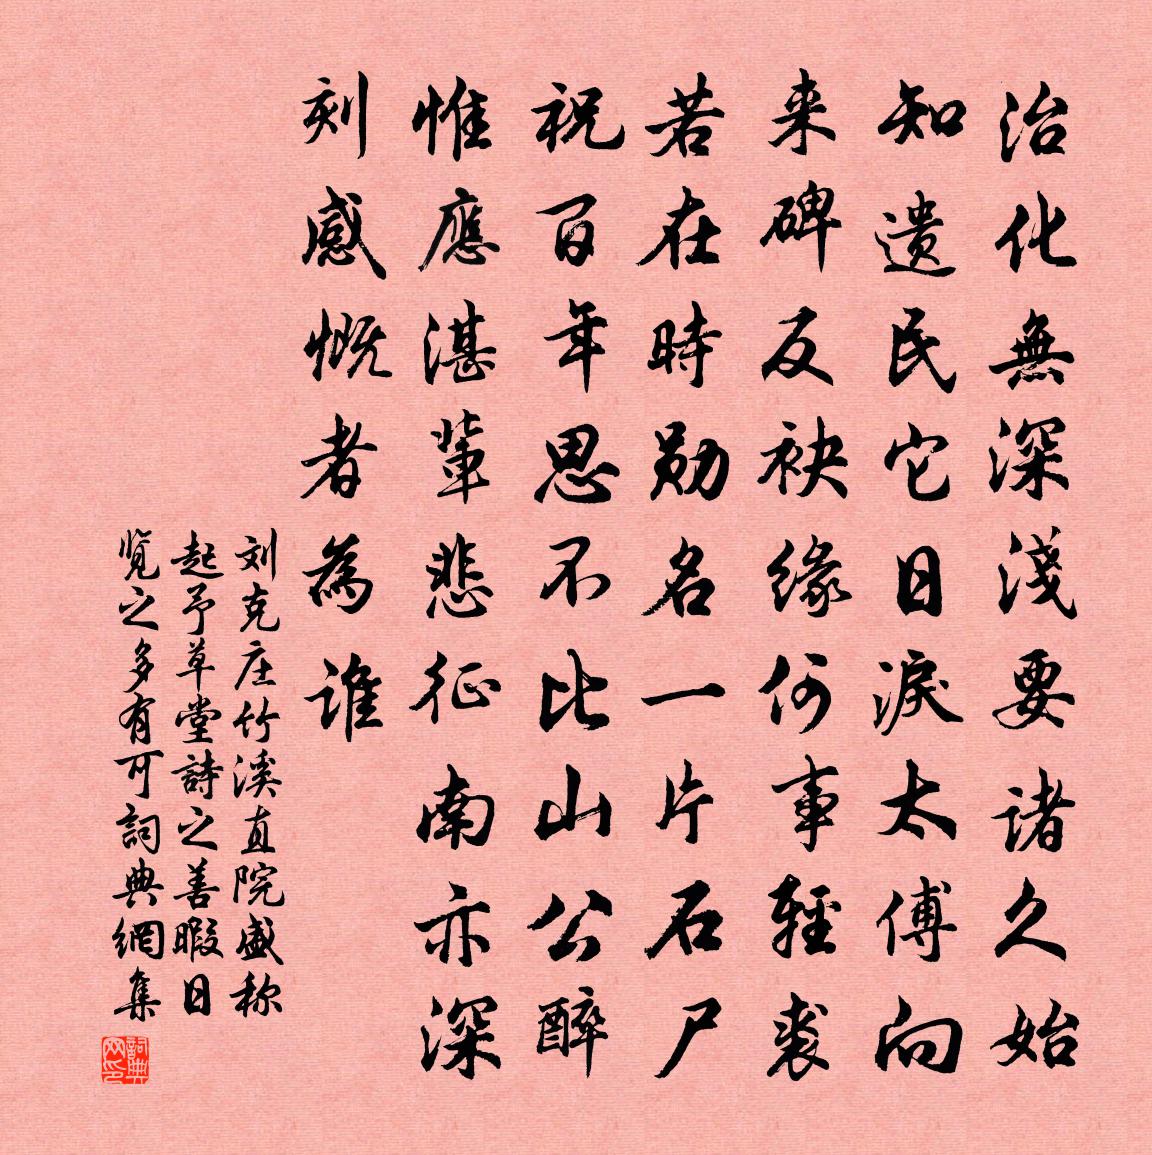 治化無深淺要諸久始
知遺民它日淚太傅向
来碑反袂緣何事輕裘
若在時勛名一片石尸
祝百年思不比山公醉
惟應湛輩悲征南亦深
刻感慨者為誰
刘克庄竹溪直院盛称
起予草堂詩之善暇日
覽之多有可詞典網集
詞典网印